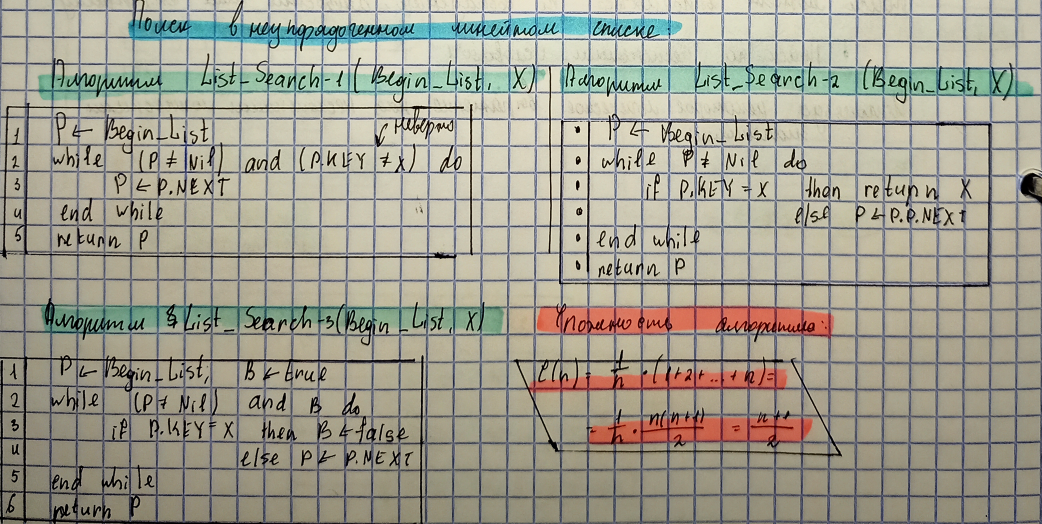 Поиск в неупорядоченном линейном списке:
Алгоритм List_Search-1 (Begin_List, X)
1 P ← Begin_List
неверно
2 while (P ≠ Nil) and (P.KEY ≠ X) do
3 P ← P.NEXT
4 end while
5 return P
Алгоритм List_Search-2 (Begin_List, X)
• P ← Begin_List
• while P ≠ Nil do
• if P.KEY = X then return X
• else P ← P.P.NEXT
• end while
• return P
Алгоритм List_Search-3 (Begin_List, X)
1 P ← Begin_List; B ← true
2 while (P ≠ Nil) and B do
3 if P.KEY = X then B ← false
4 else P ← P.NEXT
5 end while
6 return P
Сложность алгоритма:
C(n) = 1/n · (1+2+...+n) =
= 1/n · n(n+1)/2 = n+1/2